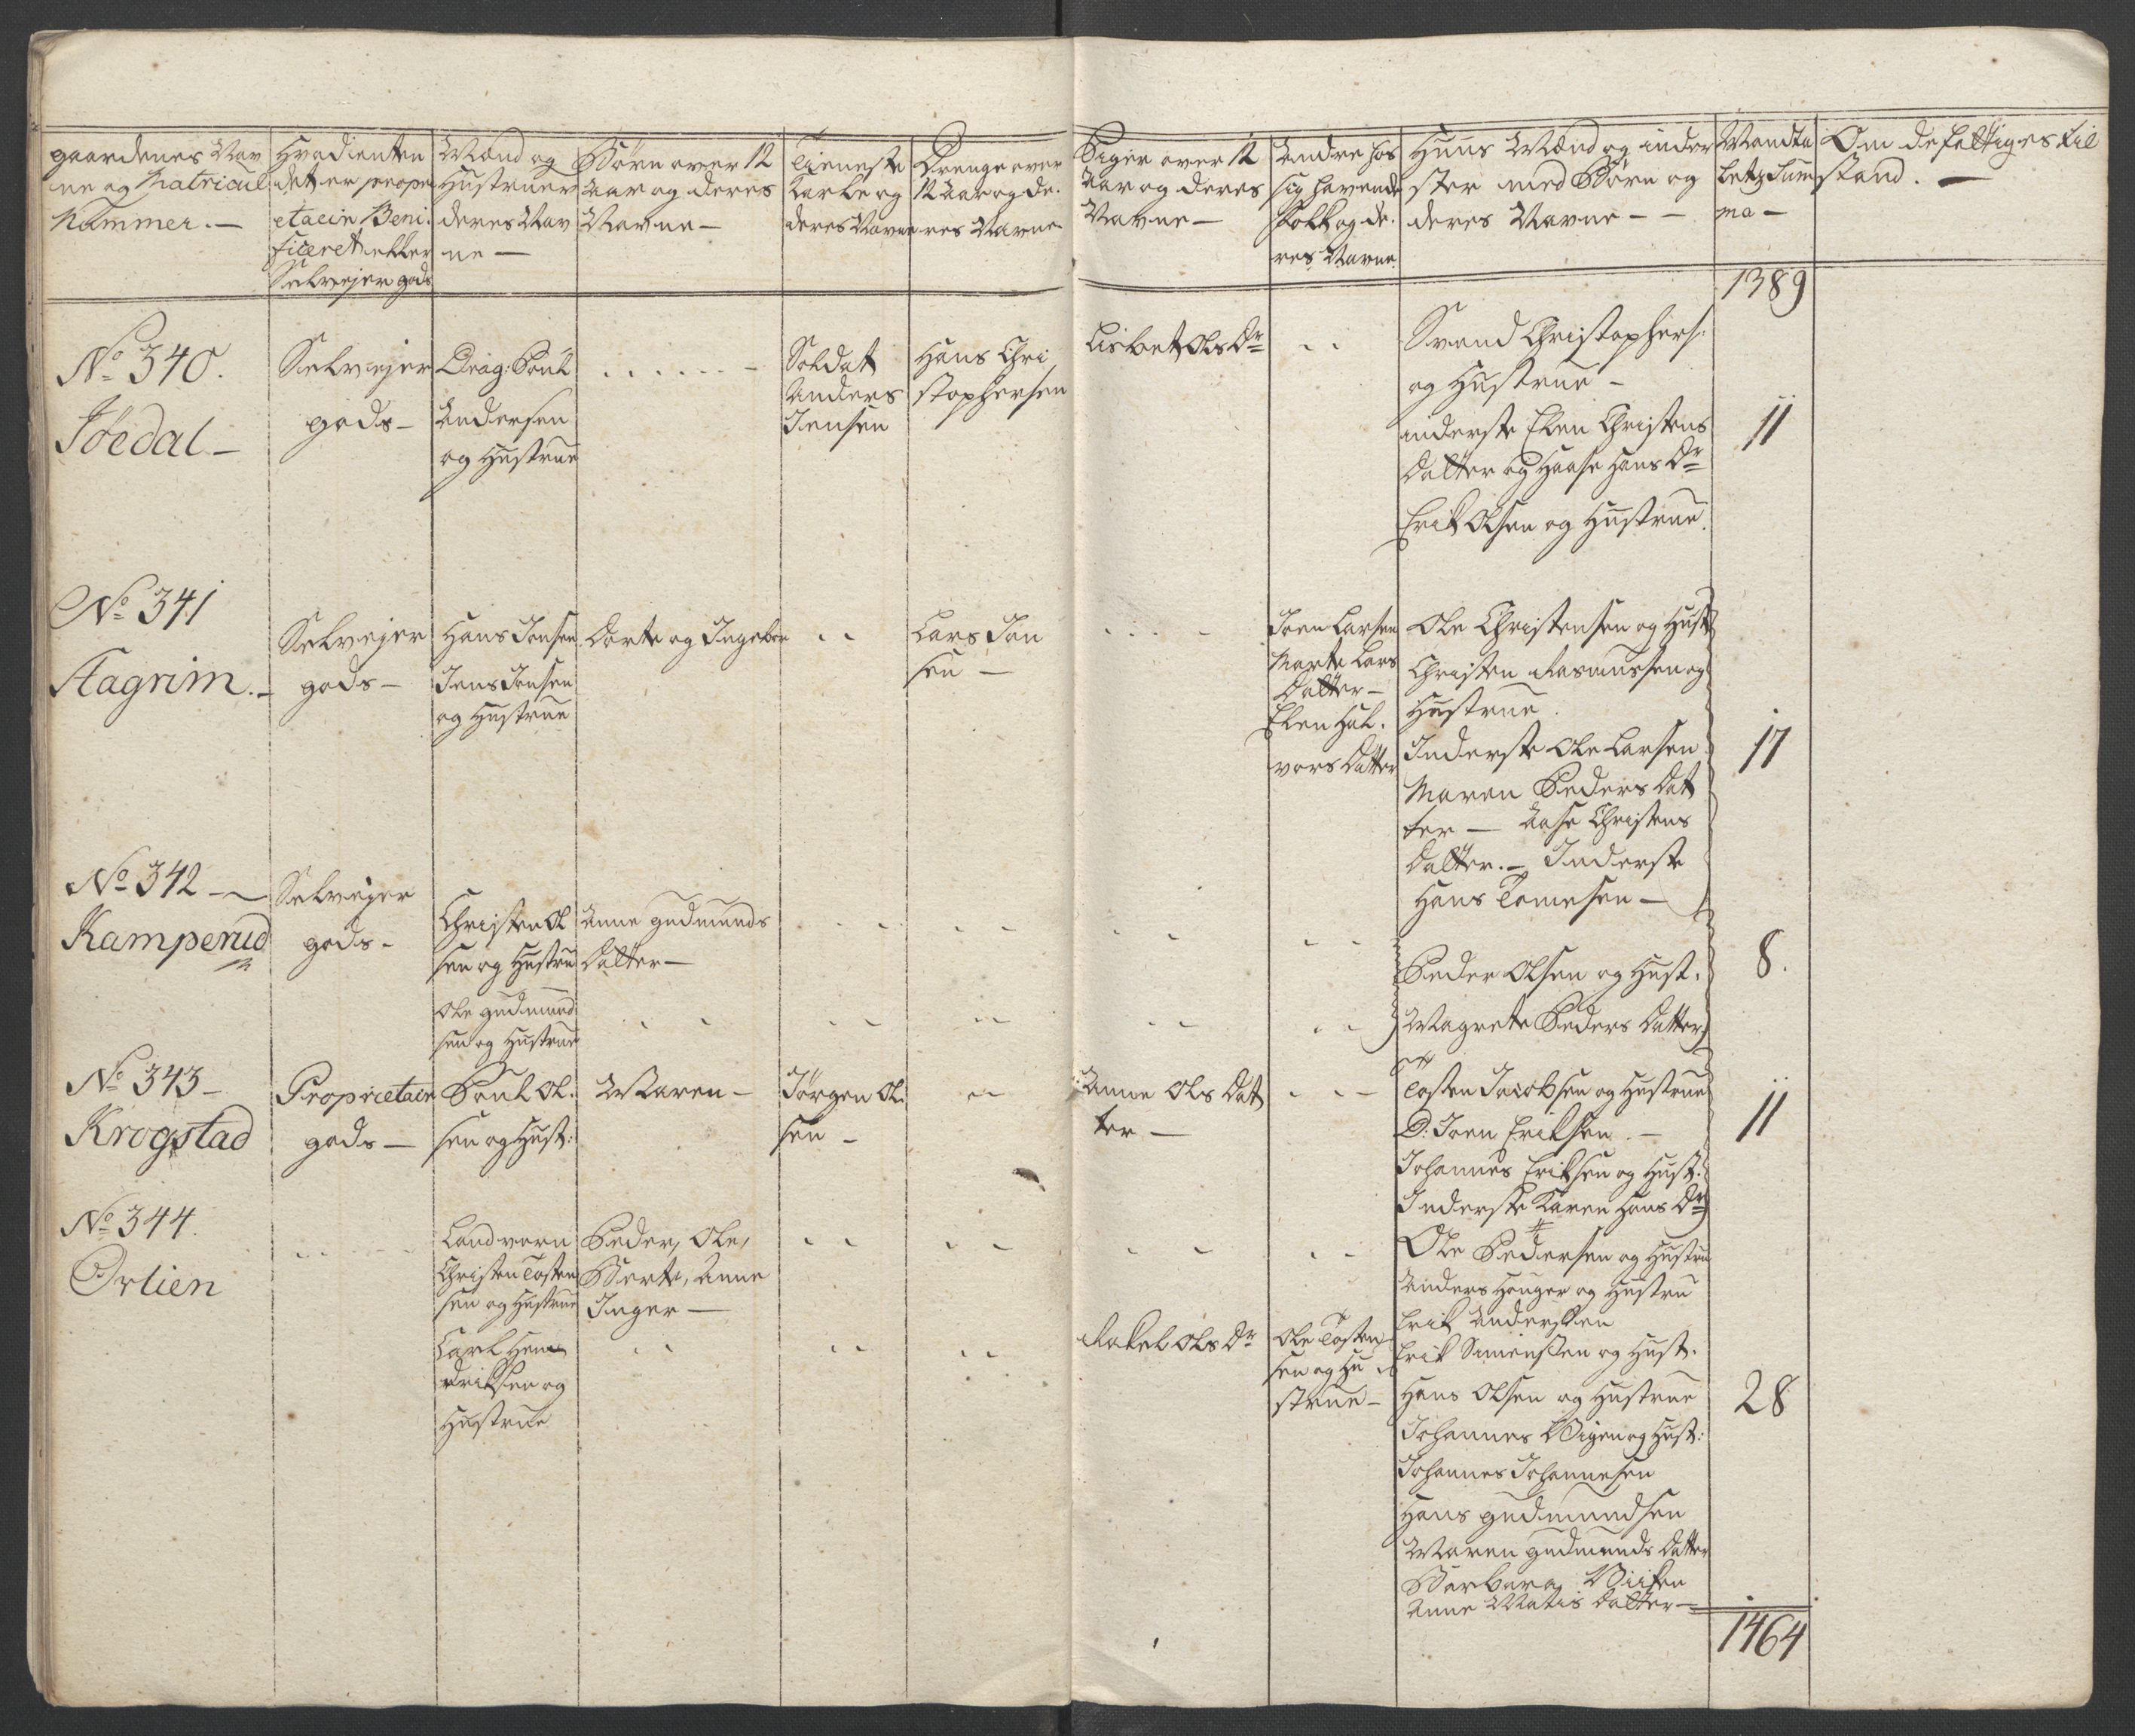 gaardenes Nav
ne og Matricul
Nummer. —
Hvadienten
det er prope
etaein Beni:
ficeret eller
Selvejer gods
Mænd og
Hustruer
deres Nav
ne —
Børn over 12
Aar og deres
Navne —
Tieneste
Karle og
deres Navne
Drenge over
12 Aar og de.
res Navne
Piger over 12
Aar og deres
Navne —
Andre hos
sig havende
Folk og de.
res Navne
Huus Mænd og inder
ster med Børn og
deres Navne — —
Mandta
lets Sum
ma —
Om de fattiges til
stand. —
1389
No 340.
Döedal —
Selvejer
gods —
Drag: Poul
Andersen
og Hustrue
Soldat
Anders
Jensen
Hans Chri
stophersen
Lisbet Ols Dr
Svend Christophers:
og Hustrue —
inderste Elen Christens
Datter og Haase Hans Dr
Erik Olsen og Hustrue.
11
No 341
Aagrim. —
Selvejer
gods —
Hans Jensen
Jens Jensen
og Hustrue
Dorte og Ingebor
Lars Jon
sen —
Joen Larsen
Marte Lars
Datter —
Elen Hal.
vors Datter
Ole Christensen og Hust
Christen Rasmussen og
Hustrue.
Inderste Ole Larsen
Maren Peders Dat
ter — Aase Christens
Datter. — Inderste
Hans Tomesen —
17
No 342 —
Kamperud
Selvejer
gods —
Christen Ol
sen og Hustru
Ole gudmund
sen og Hustrue
Anne gudmunds
Datter —
Peder Olsen og Hust.
Magrete Peders Datter
8.
No 343 —
Krogstad
Proprietair
gods —
Poul Ol.
sen og Hust:
Maren —
Jörgen Ol.
sen —
Anne Ols Dat
ter —
Tosten Jacobsen og Hustrue
D: Joen Eriksen. —
Johannes Eriksen og Hust:
Inderste Karen Hans Dr
11
No 344.
Orlien
Landvern
Christen Tosten
sen og Hustrue
Carl Hen
driksen og
Hustrue
Peder, Ole,
Berte, Anne
Inger —
Rakel Ols Dr
Ole Tosten
sen og Hu
strue —
Ole Pedersen og Hustru
Anders Hauger og Hustru
Erik Andersen
Erik Simensen og Hust.
Hans Olsen og Hustrue
Johannes Vigen og Hust:
Johannes Johannesen
Hans gudmundsen
Maren gudmunds Datter
Barbara Viiken
Anne Matis Datter —
28
1464